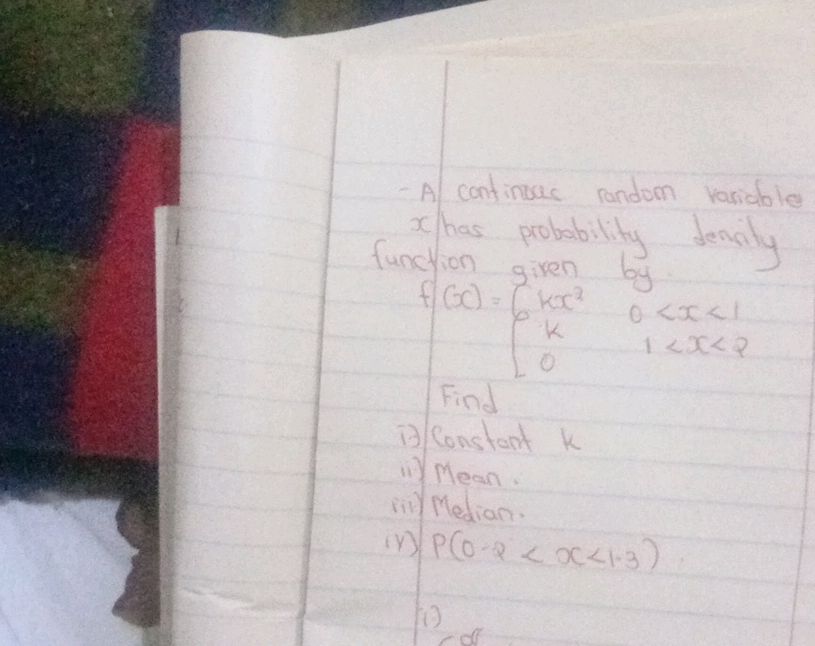 - A continous random variable
x has probability density
function given by
f(x) = { kx² 0 < x < 1
k 1 < x < 2
0
Find
i) Constant k
ii) Mean.
iii) Median.
iv) P(0.2 < x < 1.3).
i)